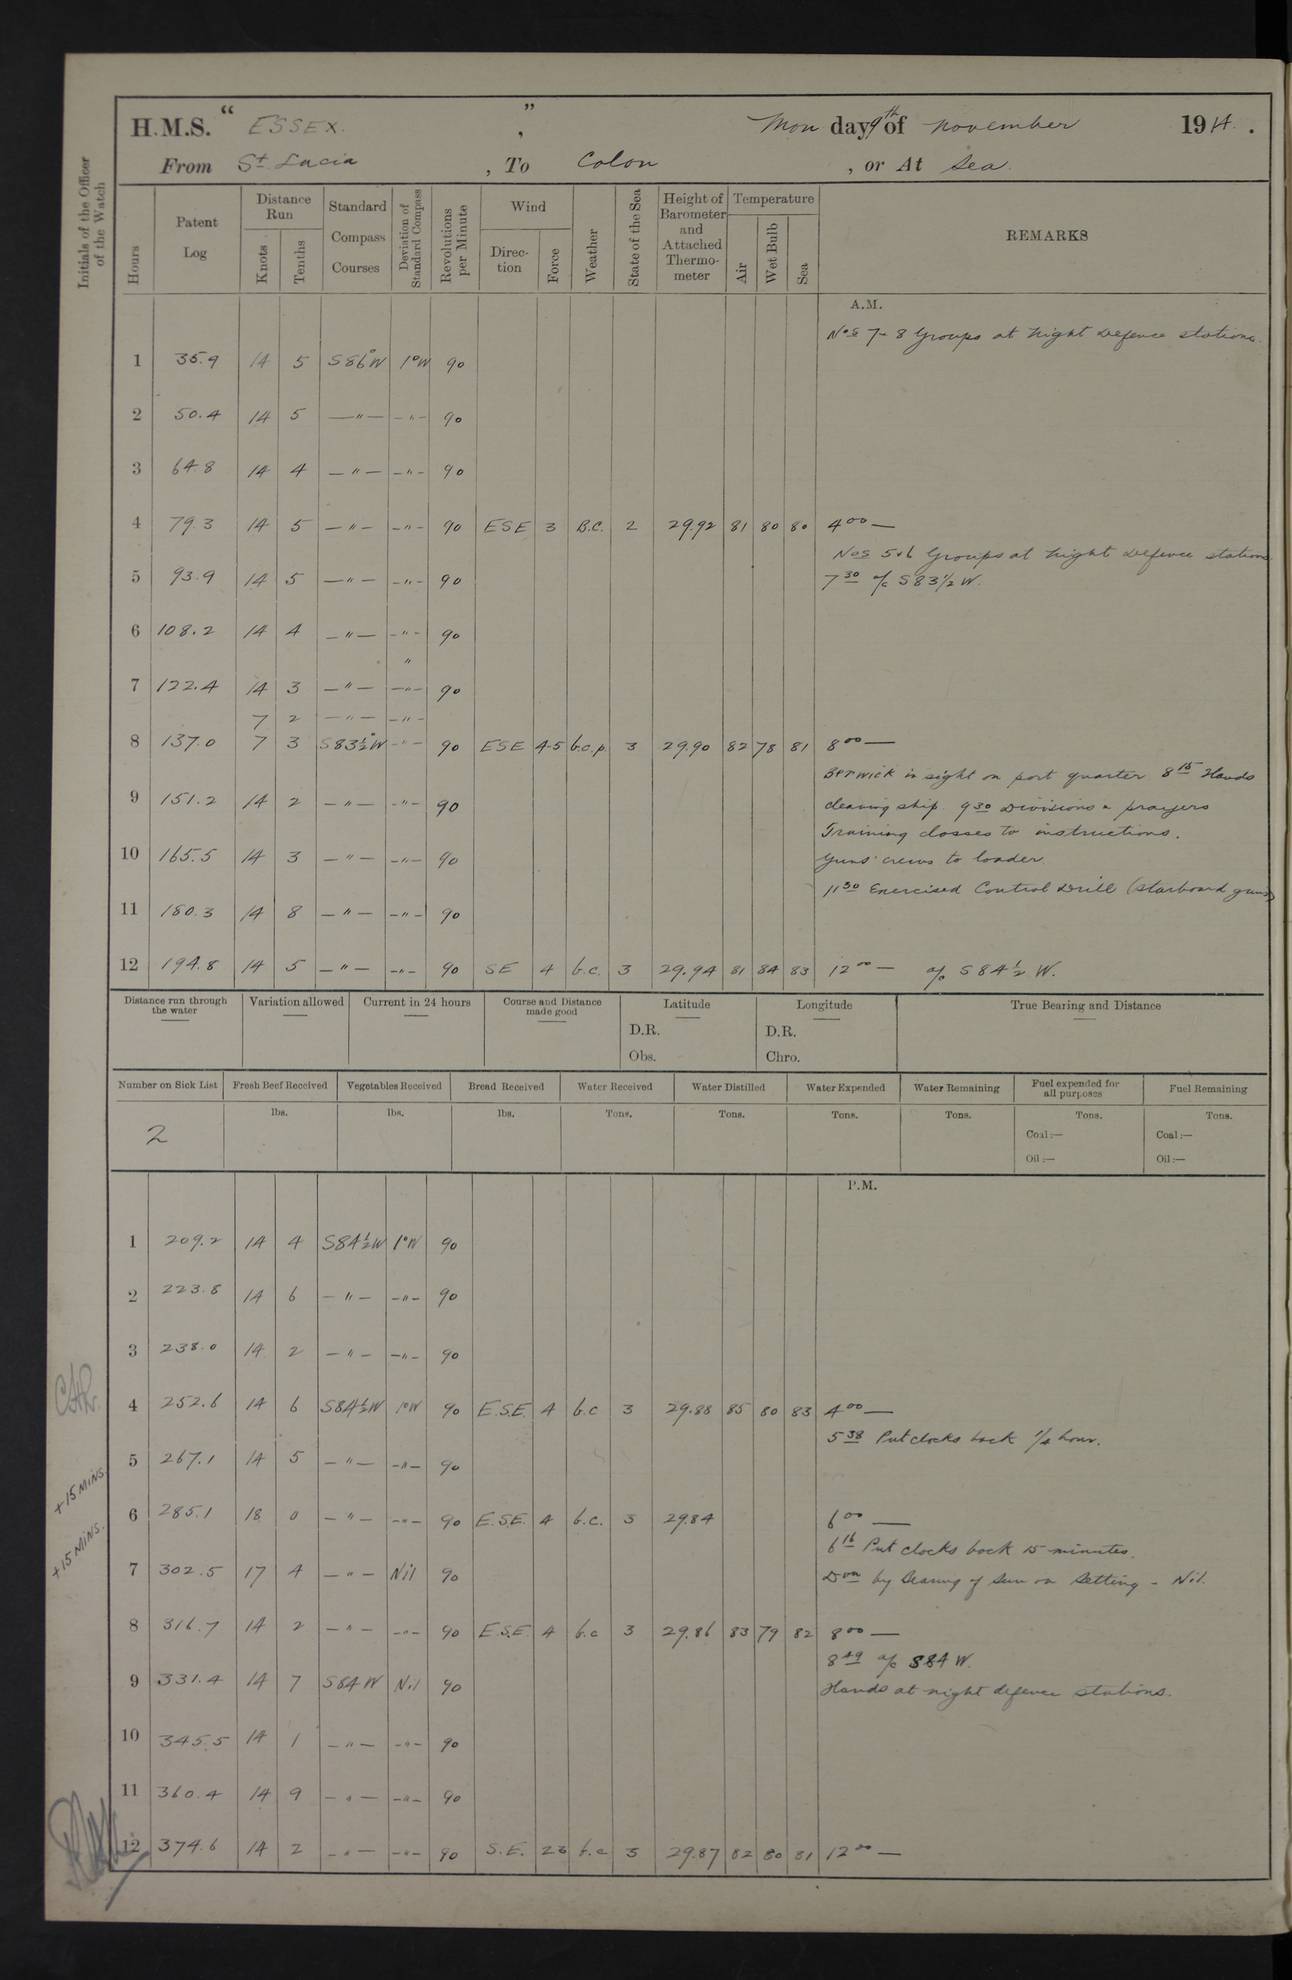 H.M.S. " ESSEX. " , Mon day 9th of November 1914.
From St Lucia , To Colon , or At Sea.
Initials of the Officer of the Watch
Hours Patent Log Distance Run Knots Tenths Standard Compass Courses Deviation of Standard Compass Revolutions per Minute Wind Direction Force Weather State of the Sea Height of Barometer and Attached Thermometer Temperature Air Wet Bulb Sea REMARKS
A.M.
Nos 7 & 8 Groups at Night Defence stations.
1 35.9 14 5 S86°W 1°W 90
2 50.4 14 5 —"— -"- 90
3 64.8 14 4 —"— -"- 90
4 79.3 14 5 —"— -"- 90 ESE 3 B.C. 2 29.92 81 80 80 4 00 —
Nos 5 & 6 Groups at Night Defence stations
5 93.9 14 5 —"— -"- 90 7 30 a/c S83½W.
6 108.2 14 4 —"— -"- 90
"
7 122.4 14 3 —"— -"- 90
7 2 —"— -"-
8 137.0 7 3 S83½°W -"- 90 ESE 4-5 b.c.p. 3 29.90 82 78 81 8 00 —
Berwick in sight on port quarter 8 15 Hands
9 151.2 14 2 —"— -"- 90 cleaning ship. 9 30 Divisions & prayers
Training classes to instructions.
10 165.5 14 3 —"— -"- 90 Guns' crews to loader.
11 30 Exercised Control Drill (starboard guns)
11 180.3 14 8 —"— -"- 90
12 194.8 14 5 —"— -"- 90 SE 4 b.c. 3 29.94 81 84 83 12 00 — a/c S84½ W.
Distance run through the water Variation allowed Current in 24 hours Course and Distance made good Latitude Longitude True Bearing and Distance
D.R. D.R.
Obs. Chro.
Number on Sick List Fresh Beef Received Vegetables Received Bread Received Water Received Water Distilled Water Expended Water Remaining Fuel expended for all purposes Fuel Remaining
lbs. lbs. lbs. Tons. Tons. Tons. Tons. Tons. Tons.
2 Coal:— Coal:—
Oil:— Oil:—
P.M.
1 209.2 14 4 S84½W 1°W 90
2 223.8 14 6 —"— -"- 90
3 238.0 14 2 —"— -"- 90
4 252.6 14 6 S84½W 1°W 90 E.S.E. 4 b.c 3 29.88 85 80 83 4 00 —
5 38 Put clocks back ¼ hour.
5 267.1 14 5 —"— -"- 90
+15 MINS.
6 285.1 18 0 —"— -"- 90 E.S.E. 4 b.c. 3 29.84 6 00 —
6 16 Put clocks back 15 minutes.
+15 MINS.
7 302.5 17 4 —"— Nil 90 Dvn by Bearing of Sun on Setting - Nil.
8 316.7 14 2 —"— -"- 90 E.S.E. 4 b.c 3 29.86 83 79 82 8 00 —
8 49 a/c S84 W.
9 331.4 14 7 S84W Nil 90 Hands at night defence stations.
10 345.5 14 1 —"— -"- 90
11 360.4 14 9 —"— -"- 90
12 374.6 14 2 —"— -"- 90 S.E. 23 b.c 3 29.87 82 80 81 12 00 —